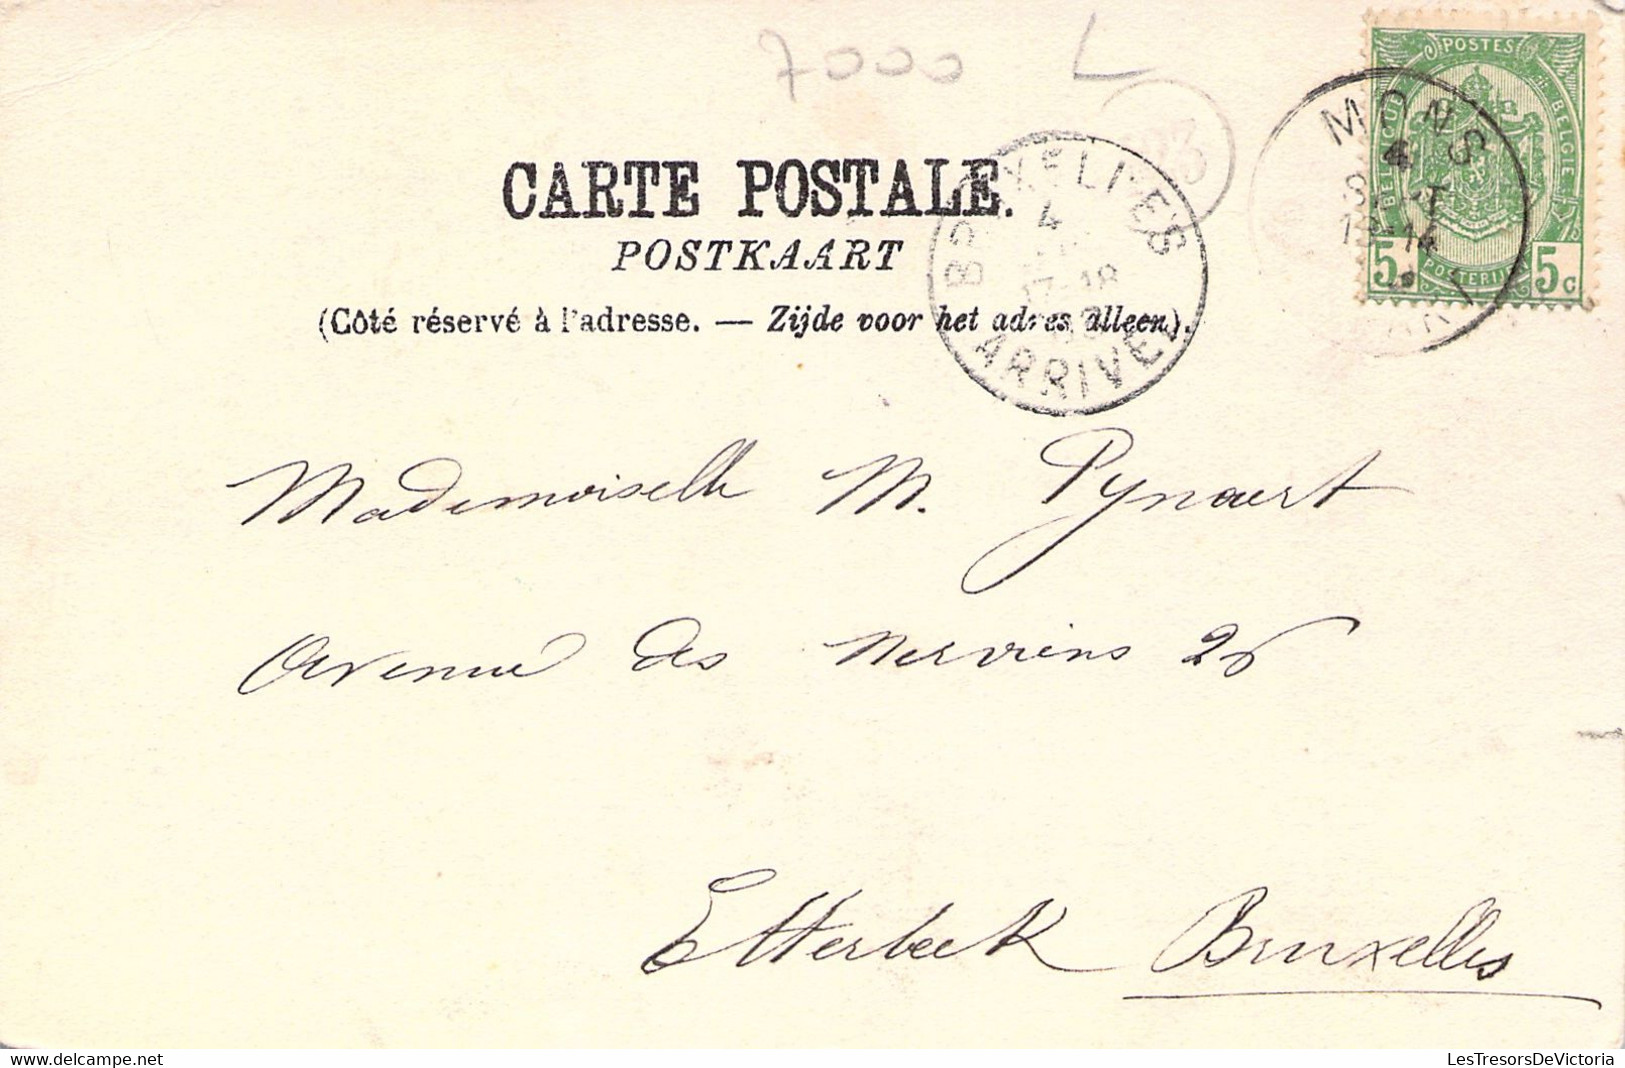 7000 L
POSTES
BELGIQUE
BELGIE
5 5c
POSTERIJEN
MONS
4
13-14
CARTE POSTALE.
POSTKAART
(Côté réservé à l'adresse. — Zijde voor het adres alleen).
BRUXELLES
4
17-18
ARRIVEE
Mademoiselle M. Pynaert
Avenue des Nerviens 26
Etterbeek Bruxelles
www.delcampe.net
LesTresorsDeVictoria